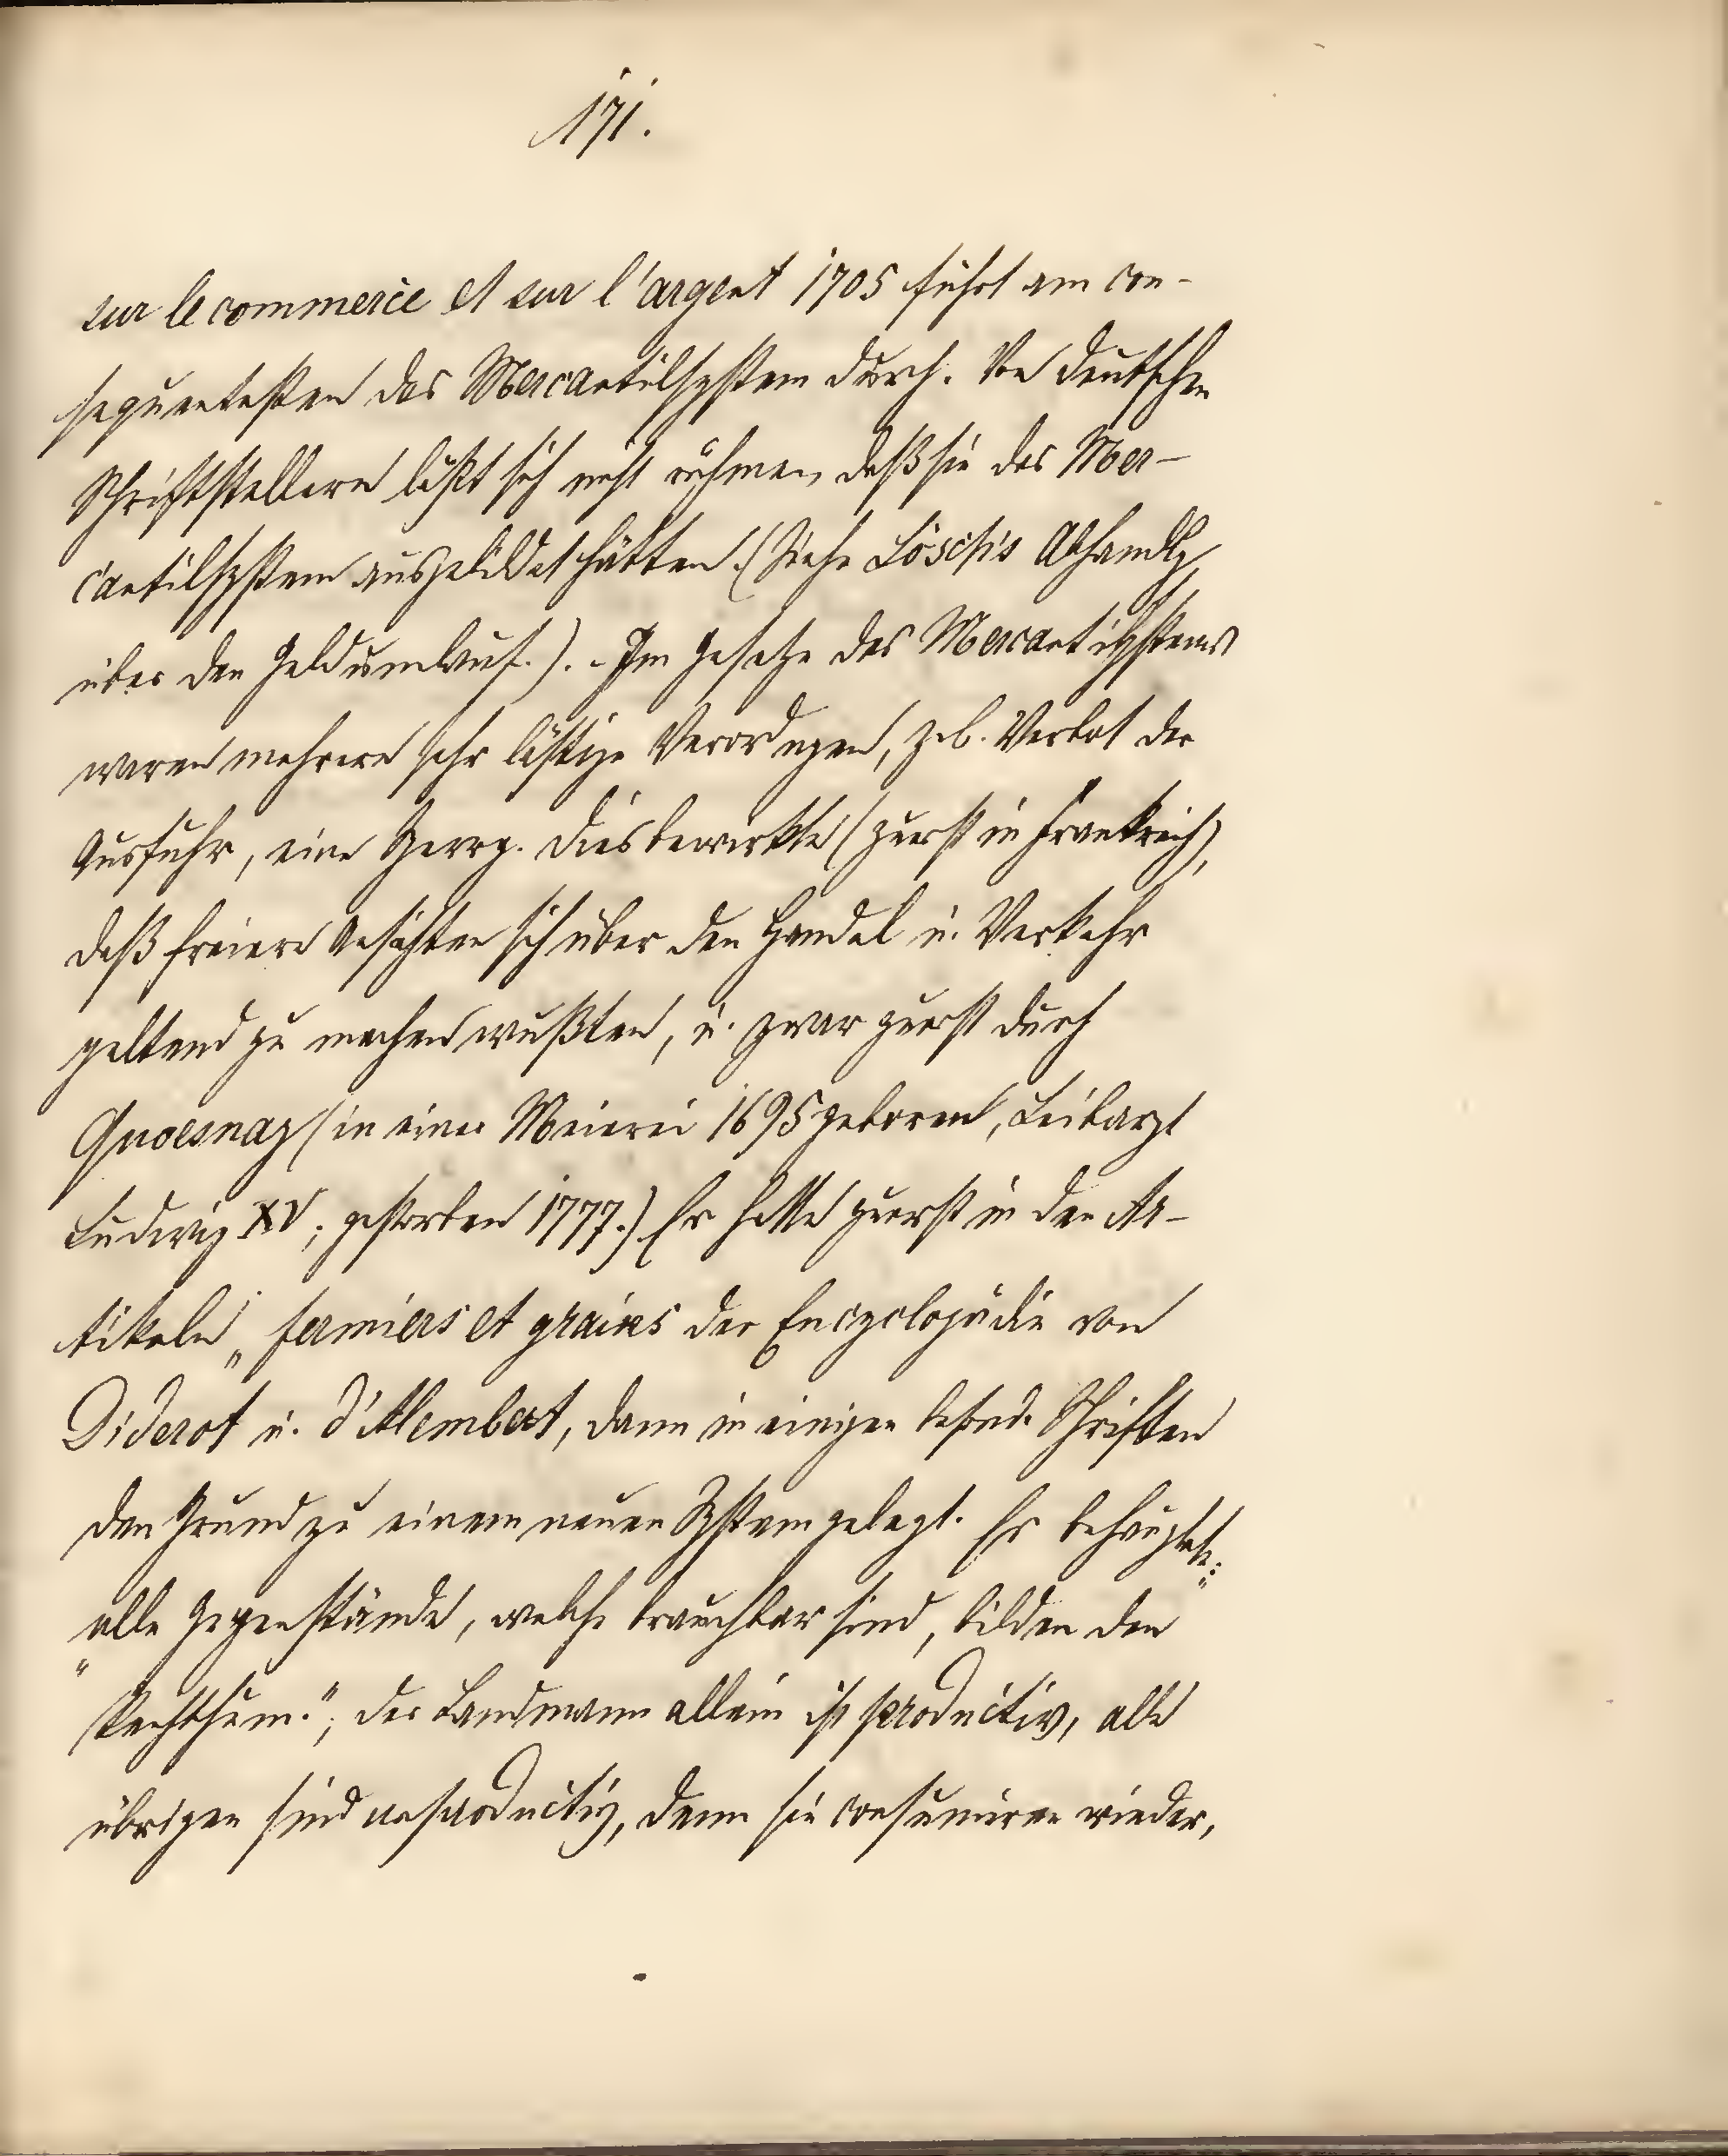 171.
sur le commerce et sur l'argent 1705 führt am con-
sequentesten das Mercantilsystem durch. Von deutschen
Schriftstellern läßt sich nicht rühmen, daß sie das Mer-
cantilsystem ausgebildet hätten. (Siehe Löschs Abhandlg
über den Geldumlauf.). - Im Gesetze des Mercantilsystems
waren mehrere sehr lästige Verordngen, z.b. Verbot der
Ausfuhr, eine Sperrg. Dies bewirkte (zuerst in Frankreich),
daß freiere Ansichten sich über den Handel u. Verkehr
geltend zu machen wußten, u. zwar zuerst durch
Quoesnay (in einer Meierei 1695 geboren, Leibarzt
Ludwig XV; gestorben 1777.) Er hatte zuerst in den Ar-
tikeln „fermiers et grains der Encyclopädie von
Diderot u. d'Alembert, dann in einigen besond. Schriften
den Grund zu einem neuen System gelegt. Er behauptete:
„alle Gegenstände, welche brauchbar sind, bilden den
Reichthum."; der Landmann allein ist productiv, alle
übrigen sind unproductiv, denn sie consumiren wieder,